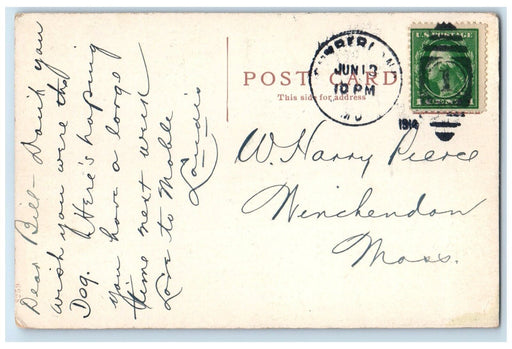 POST CARD
This side for address
JUN 13
10 PM
1914
U.S. POSTAGE
1
Dear Bill - Don't you
wish you were the
Dog. Here's hoping
you have a large
time next week
Love to Mable
W. Harry Pierce
Winchendon
Mass.